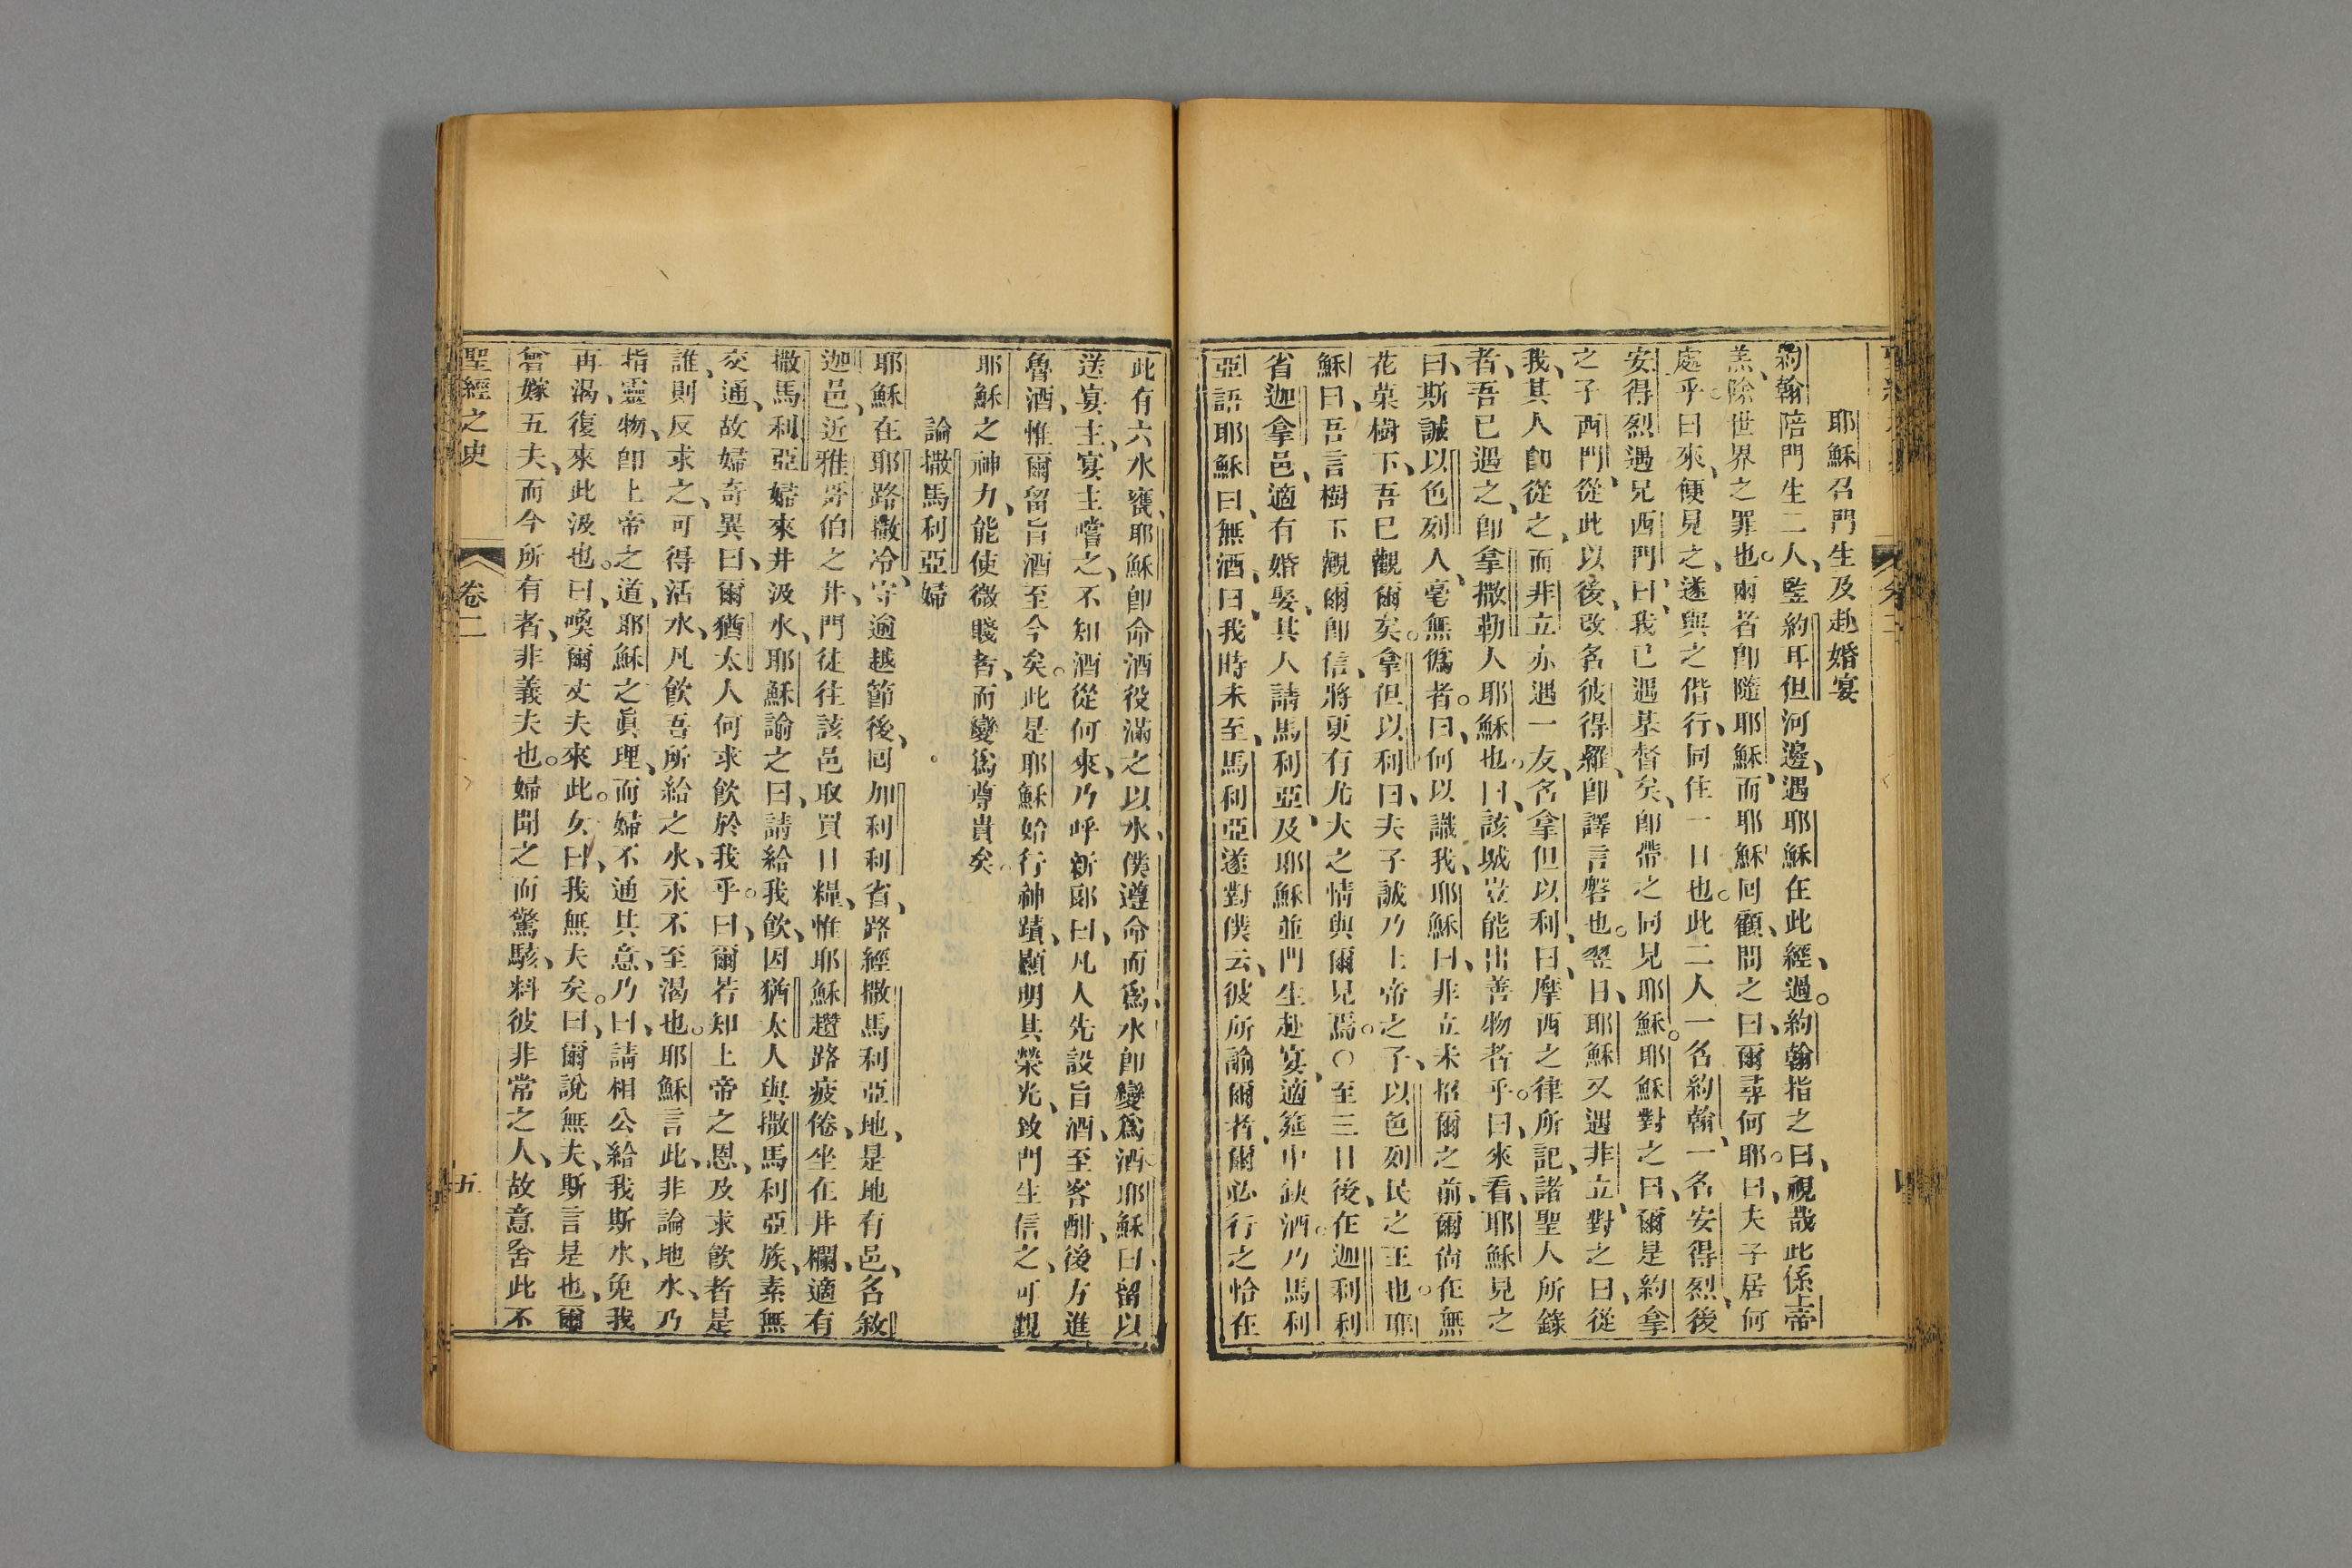 耶穌召門生及赴婚宴
約翰陪門生二人、監約耳但河邊、遇耶穌在此經、過。約翰指之曰、視哉此係上帝
羔、除世界之罪也。兩者卽隨耶穌、而耶穌回顧、問之曰、爾尋何耶。曰、夫子居何
處乎。曰來、便見之、遂與之偕行、同住一日也。此二人一名約翰、一名安得烈、後
安得烈遇兄西門、曰、我已遇基督矣、卽帶之同見耶穌。耶穌對之曰、爾是約拿
之子西門、從此以後、改名彼得羅、卽譯言磐也。翌日、耶穌又遇非立、對之曰、從
我、其人卽從之、而非立亦遇一友、名拿但以利、曰、摩西之律所記、諸聖人所錄
者、吾已遇之、卽拿撒勒人耶穌也。曰、該城豈能出善物者乎。曰、來看、耶穌見之
曰、斯誠以色列人、毫無僞者。曰、何以識我、耶穌曰、非立未招爾之前、爾尙在無
花菓樹下、吾已觀爾矣。拿但以利曰、夫子誠乃上帝之子、以色列民之王也。耶
穌曰、吾言樹下觀爾卽信、將更有尤大之情與爾見焉。○至三日後、在迦利利
省迦拿邑、適有婚娶、其人請馬利亞、及耶穌並門生赴宴、適筵中缺酒。乃馬利
亞語耶穌曰、無酒、曰、我時未至、馬利亞遂對僕云、彼所諭爾者、爾必行之恰在
此有六水甕、耶穌卽命酒役滿之以水、僕遵命而爲、水卽變爲酒、耶穌曰、留以
送宴主、宴主嚐之、不知酒從何來、乃呼新郞曰、凡人先設旨酒、至客酣、後方進
魯酒、惟爾留旨酒至今矣。此是耶穌始行神蹟、顯明其榮光、致門生信之、可觀
耶穌之神力、能使微賤者、而變爲尊貴矣。
論撒馬利亞婦
耶穌在耶路撒冷、守逾越節後、回加利利省、路經撒馬利亞地、是地有邑、名敘
迦邑、近雅哥伯之井、門徒往該邑取買日糧、惟耶穌趲路疲倦、坐在井欄、適有
撒馬利亞婦來井汲水、耶穌諭之曰、請給我飮、因猶太人與撒馬利亞族、素無
交通、故婦奇異曰、爾猶太人何求飮於我乎。曰、爾若知上帝之恩、及求飮者是
誰、則反求之、可得活水、凡飮吾所給之水、永不至渴也。耶穌言此、非論地水、乃
指靈物、卽上帝之道、耶穌之眞理、而婦不通其意、乃曰、請相公給我斯水、免我
再渴、復來此汲也。曰、喚爾丈夫來此。女曰、我無夫矣。曰、爾說無夫、斯言是也、爾
曾嫁五夫、而今所有者、非義夫也。婦聞之而驚駭、料彼非常之人、故意舍此不
聖經之史 卷二 五